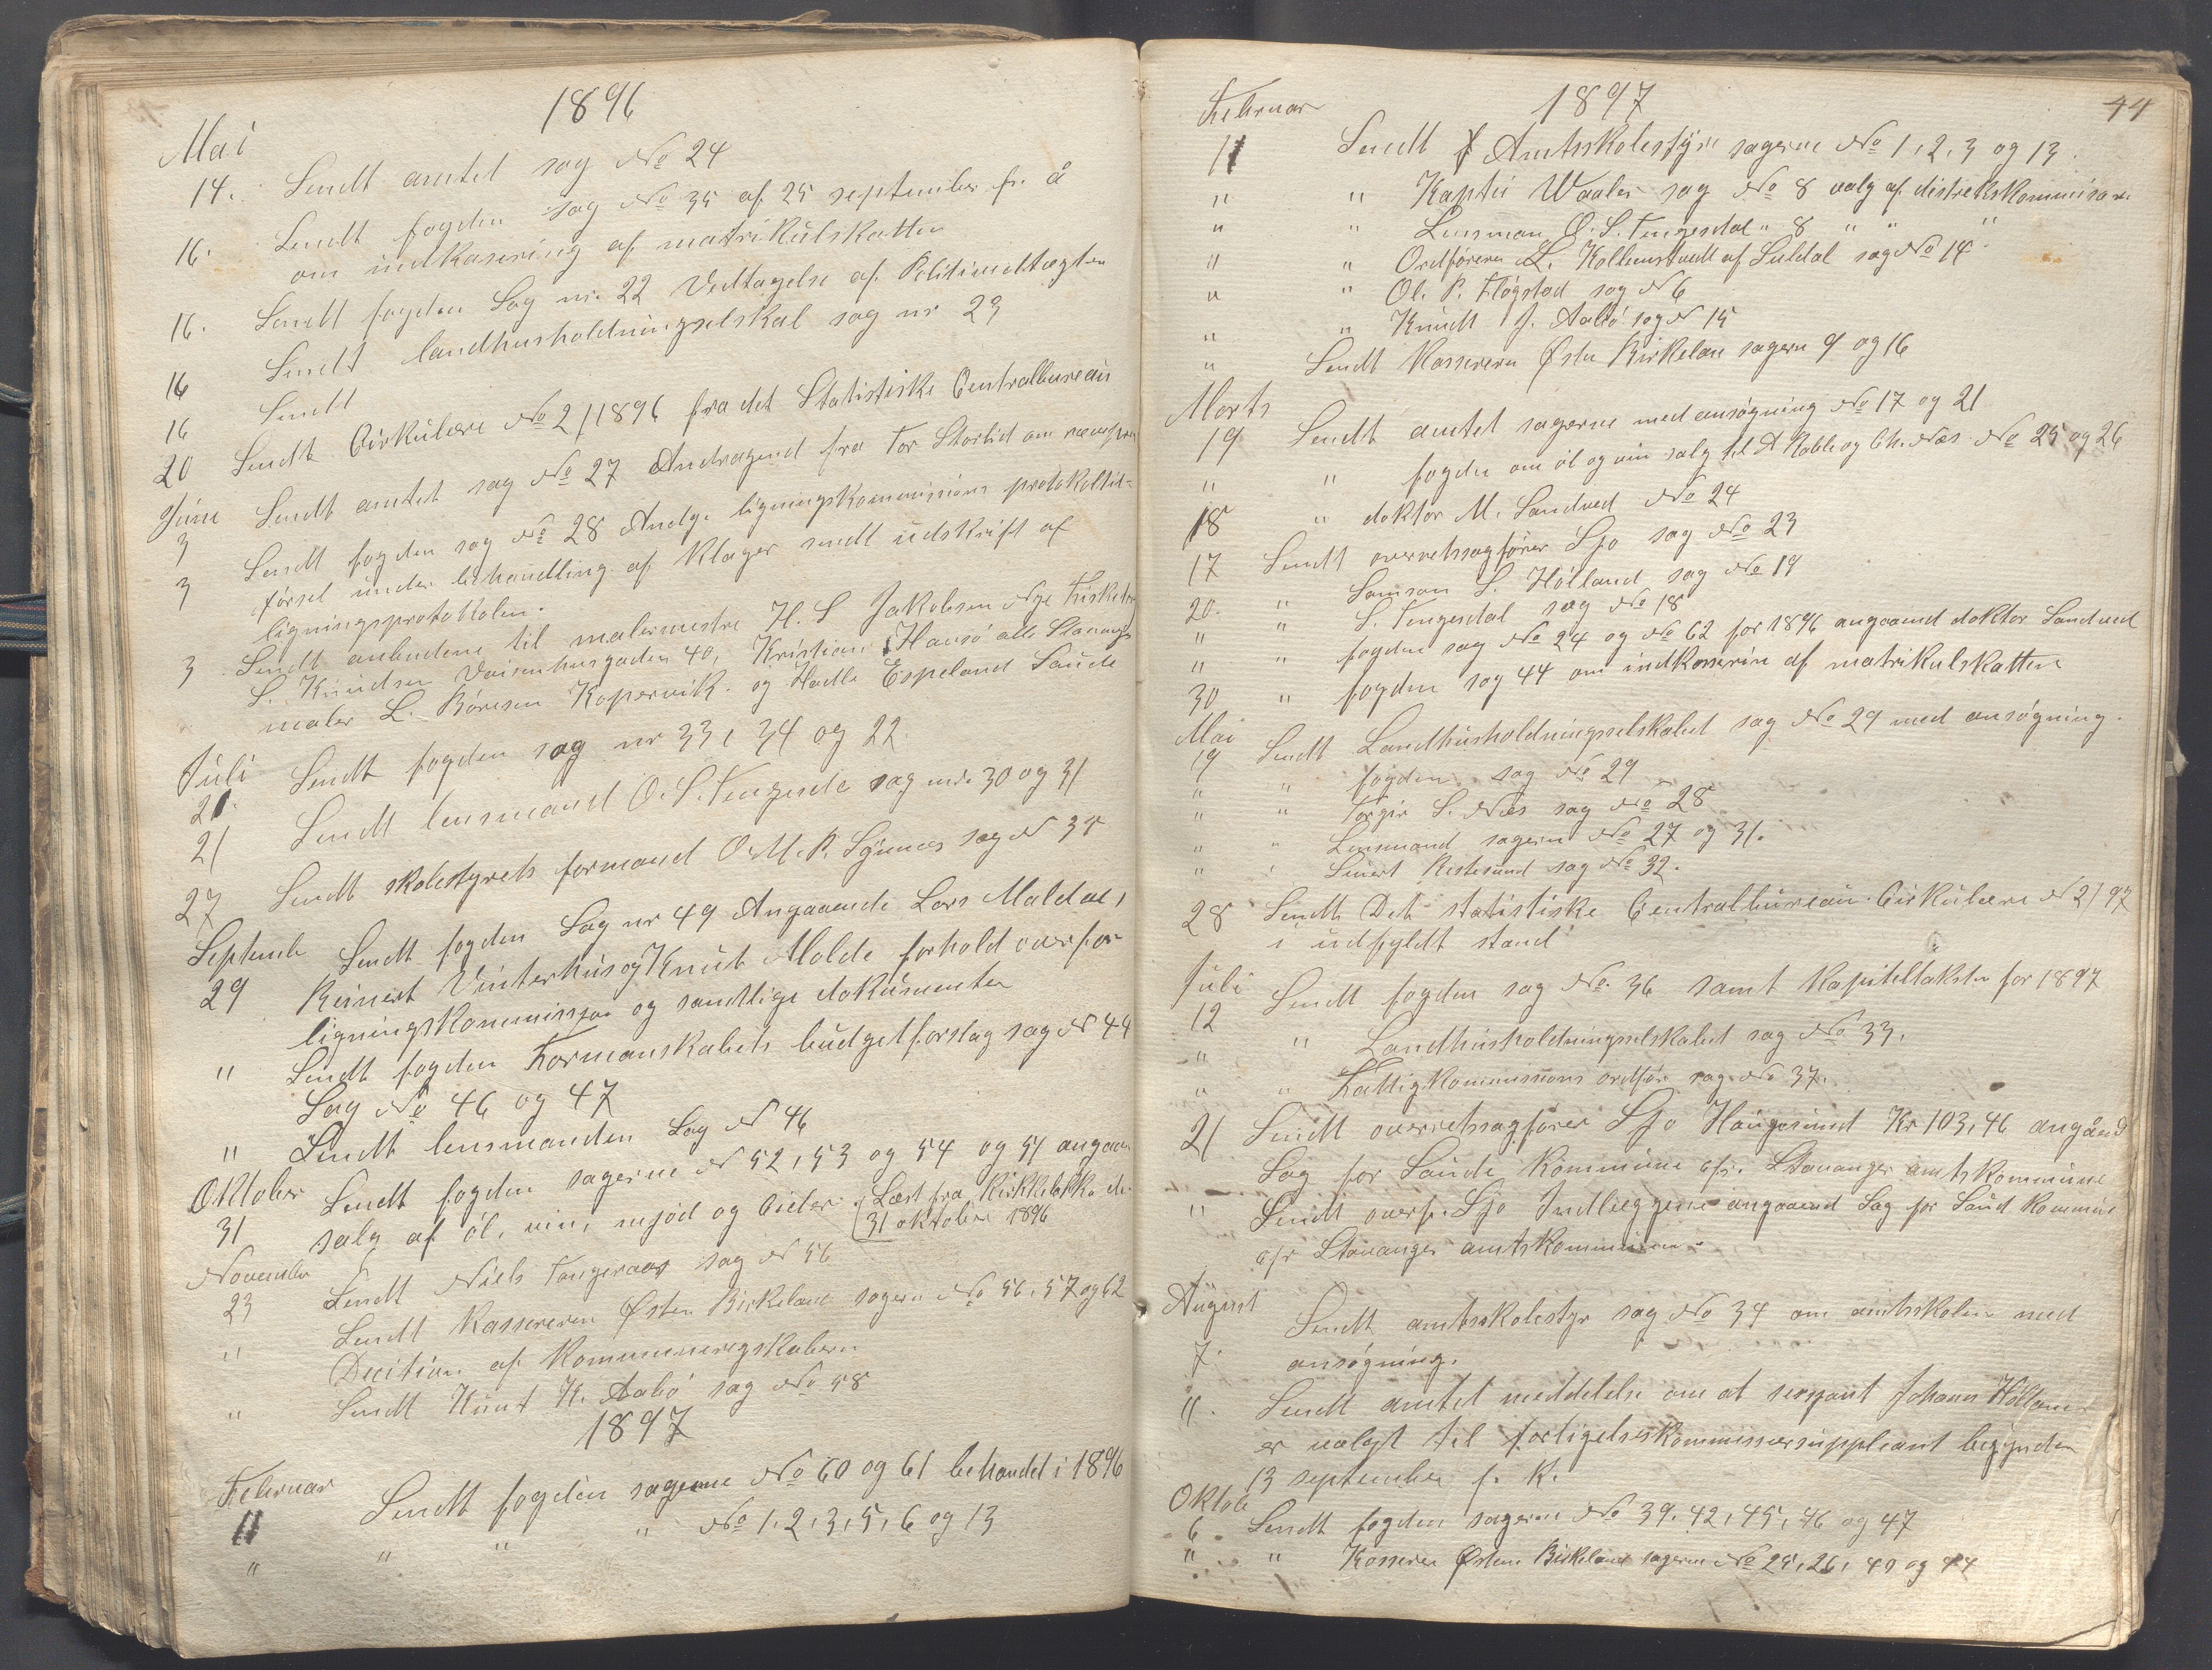 1896
Mai
14. Sendt amtet sag No 24
16. Sendt fogden sag No 35 af 25 september f. å
om indkasering af matrikulskatten
16. Sendt fogden Sag nr. 22 Vedtagelse af Politivedtægten
16 Sendt landhusholdningselskal sag nr 23
16 Sendt
20 Sendt Cirkulære No 2/1896 fra det Statistiske Centralbureau
Juni Sendt amtet sag No 27 Andragend fra Tor Storlid om
3
3 Sendt fogden sag No 28 Andg. ligningskommissions protokoltil-
førsel under behandling af klager sendt udskrift af
ligningsprotokolen.
3 Sendt anbudene til malermestre H. S Jakobsen Nye
S. Knudsen Vaisenhusgaden 40, Kristian Hausö alle Stavang
maler L. Börresen Kopervik. og Hadle Espeland Saude
Juli Sendt fogden sag nr 33, 34 og 22.
21.
21 Sendt lensmand O. S. Tengesda sag nr. 30 og 31
27 Sendt skolestyrets formand O. M. R. Synnes sag N 35
Septemb Sendt fogden Sag nr 49 Angaaende Lars Maldal,
29 Reinert Vinterhus og Knut Molde forhold overfor
ligningskommisjon og samtlige dokumenter
" Sendt fogden Formanskabets budgetforslag sag N 44
Sag No 46 og 47
" Sendt lensmanden Sag N 46
Oktober Sendt fogden sagerne N 52, 53 og 54 og 51 angaa
31 salg af öl, vin, mjöd og Cider. Læst fra Kirkebakke de
31 oktober 1896
November
23 Sendt Niels Tangeraas sag N 56
" Sendt Kassereren Østen Birkeland sagern No 56, 57 og 62
Decition af Kommuneregskabern
" Sendt Knut K. Aabö sag No 58
1897
Februar
11 Sendt fogden sagerne No 60 og 61 behandel i 1896
" " " " No 1, 2, 3, 5, 6 og 13
44
1897
Februar
11 Sendt Amtsskolestyre sagerne No 1, 2, 3 og 13.
" " Kaptei Waaler sag No 8 valg af distrekskommisare
" " Lensman O. S. Tengesdal " 8 " " "
" " Ordföreren L. Kolbenstvedt af Suldal sag No 14
" " Ol. P. Fløgstad sag N 6
" " Knudt J. Aabö sag N 15
" Sendt Kassereren Østen Birkelan sagern 9 og 16
Marts
19 Sendt amtet sagerne med ansögning No 17 og 21
" " fogden om öl og vin salg til A Roble og Ch. Næs No 25 og 26
18 " doktor M. Sandved No 24
17 Sendt overretssagförer Sjo sag No 23
20. " Samson S. Hölland sag No 19
" " S. Tengesdal sag No 18
" " fogden sag No 24 og No 62 for 1896 angaaend doktor Sandved
30 " fogden sag 44 om indkasserin af matrikulskatten
Mai
19 Sendt Landhusholdningsselskabet sag No 29 med ansögning.
" " fogden sag No 29
" " Torger S. Næs sag No 28
" " Lensmand sagern No 27 og 31.
" " Sivert Restesund sag No 32.
28 Sendt Det statistiske Centralbureau Cirkulære N 2/97
i udfyldt stand
Juli
12 Sendt fogden sag No. 36 samt Kapiteltakster for 1897
" " Landhusholdningsselskabet sag No 33.
" " Fattigkommissions ordför sag No 37.
21 Sendt overretssagförer Sjo Haugesund Kr 103,46 angåend
Sag for Saude kommune cfr. Stavanger amtskommune
" Sendt overf. Sjo Indlæggene angaaend Sag for Saud kommune
cfr Stavanger amtskommune.
August
7. Sendt amtsskolestyr sag No 34 om amtsskolen med
ansögning.
11. Sendt amtet meddelelse om at sersjant Johann Hölland
er valgt til forligelseskommissærsuppleant begynden
13 september f. k.
Oktob
6 Sendt fogden sagerne No 39, 42, 45, 46 og 47
" " Kasserer Østen Birkeland sagerne No 25, 26, 40 og 44